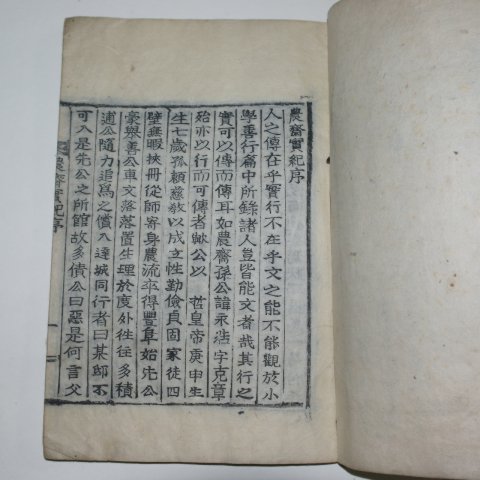 農齋實紀序
人之傳在乎實行不在乎文之能不能觀於小
學善行篇中所錄諸人豈皆能文者哉其行之
實可以傳而傳耳如農齋孫公諱永浩字克章
殆亦以行而可傳者歟公以 哲皇帝庚申生
生七歲孤賴慈敎以成立性勤儉貞固家徒四
壁無暇挾冊從師寄身農流卒得豐阜始先公
豪擧善公車文落落置生理於度外往往多積
逋公隨力追爲之償入達城同行者曰某邸不
可入是先公之所館故多債公曰惡是何言父
農齋實紀序